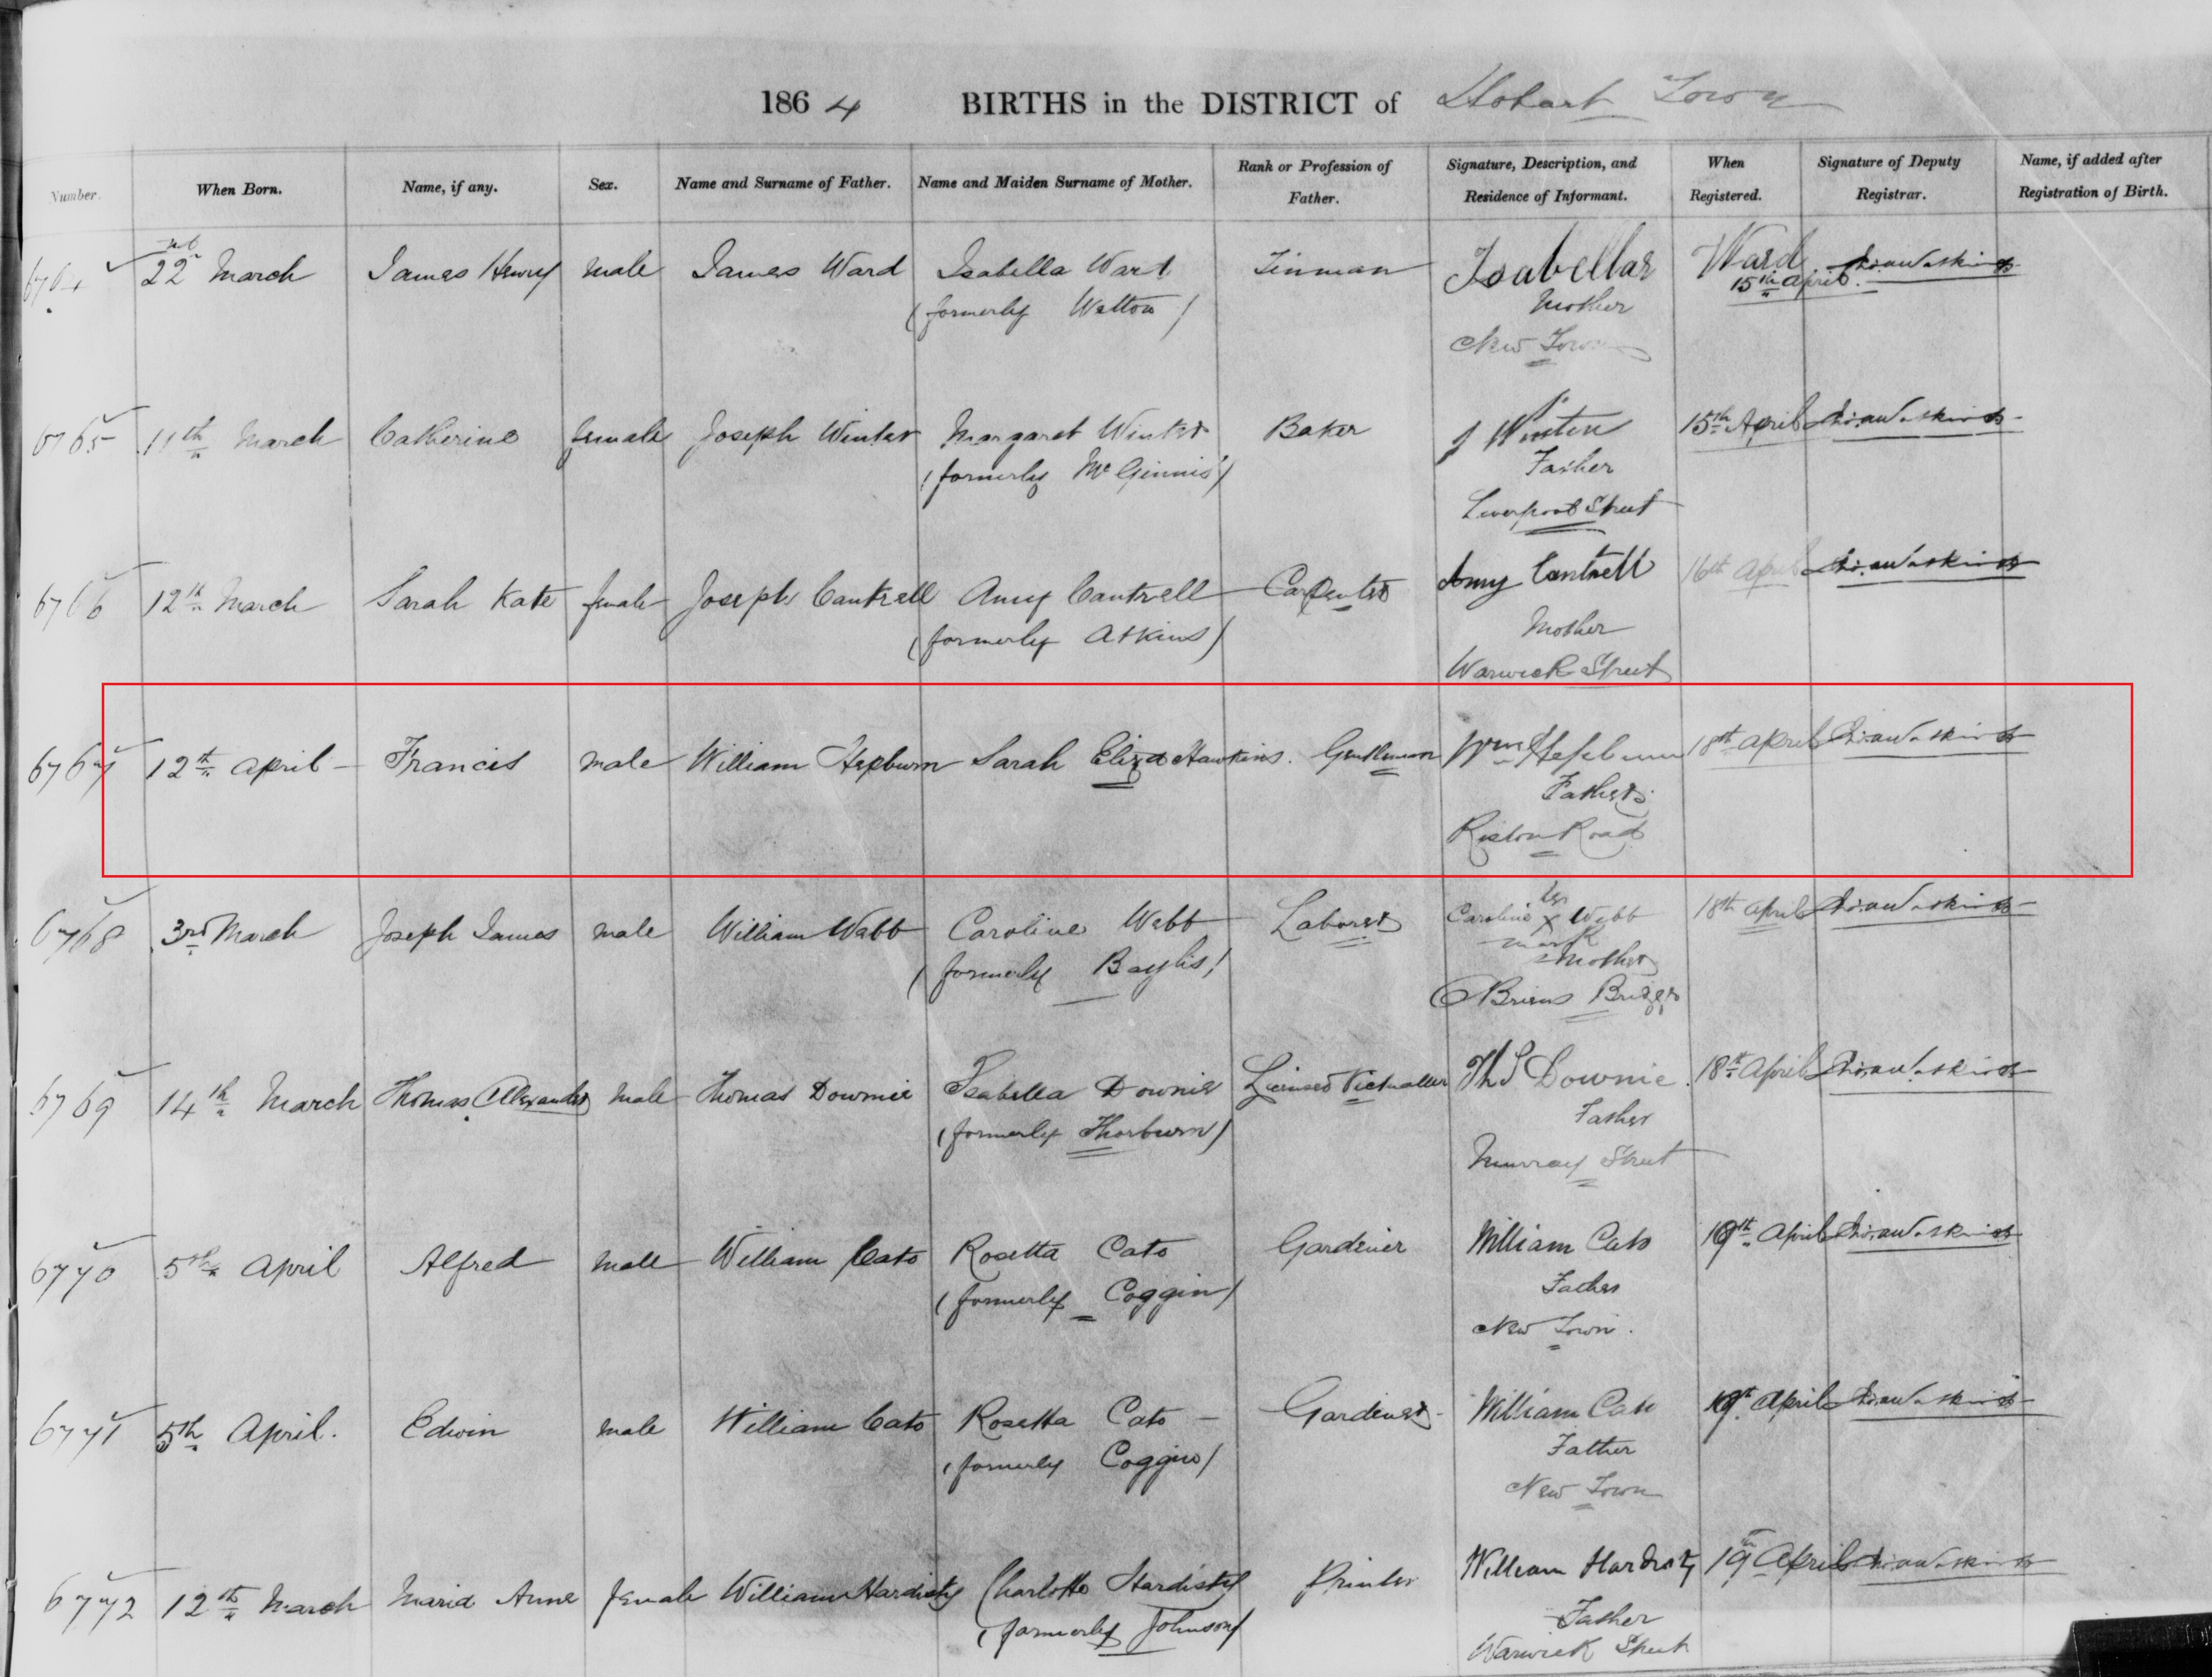 1864 BIRTHS in the DISTRICT of Hobart Town
Number. When Born. Name, if any. Sex. Name and Surname of Father. Name and Maiden Surname of Mother. Rank or Profession of Father. Signature, Description, and Residence of Informant. When Registered. Signature of Deputy Registrar. Name, if added after Registration of Birth.
6764 22nd March James Henry male James Ward Isabella Ward Tinman Isabellar Ward
(formerly Watton) Mother 15th April
New Town
6765 11th March Catherine female Joseph Winter Margaret Winter Baker J Winter 15th April
(formerly McGinnis) Father
Liverpool Street
6766 12th March Sarah Kate female Joseph Cantrell Amy Cantrell Carpenter Amy Cantrell 16th April
(formerly Atkins) Mother
Warwick Street
6767 12th April Francis male William Hepburn Sarah Eliza Hawkins. Gentleman Wm Hepburn 18th April
Father
Risdon Road
6768 3rd March Joseph James male William Webb Caroline Webb Laborer Caroline X Webb 18th April
(formerly Baylis) mark
Mother
O'Briens Bridge
6769 14th March Thomas Alexander male Thomas Downie Isabella Downie Licensed Victualler Th S Downie 18th April
(formerly Thorburn) Father
Murray Street
6770 5th April Alfred male William Cato Rosetta Cato Gardener William Cato 19th April
(formerly Coggin) Father
New Town.
6771 5th April. Edwin male William Cato Rosetta Cato Gardener William Cato 19th April
(formerly Coggin) Father
New Town
6772 12th March Maria Anne female William Hardisty Charlotte Hardisty Printer William Hardisty 19th April
(formerly Johnson) Father
Warwick Street